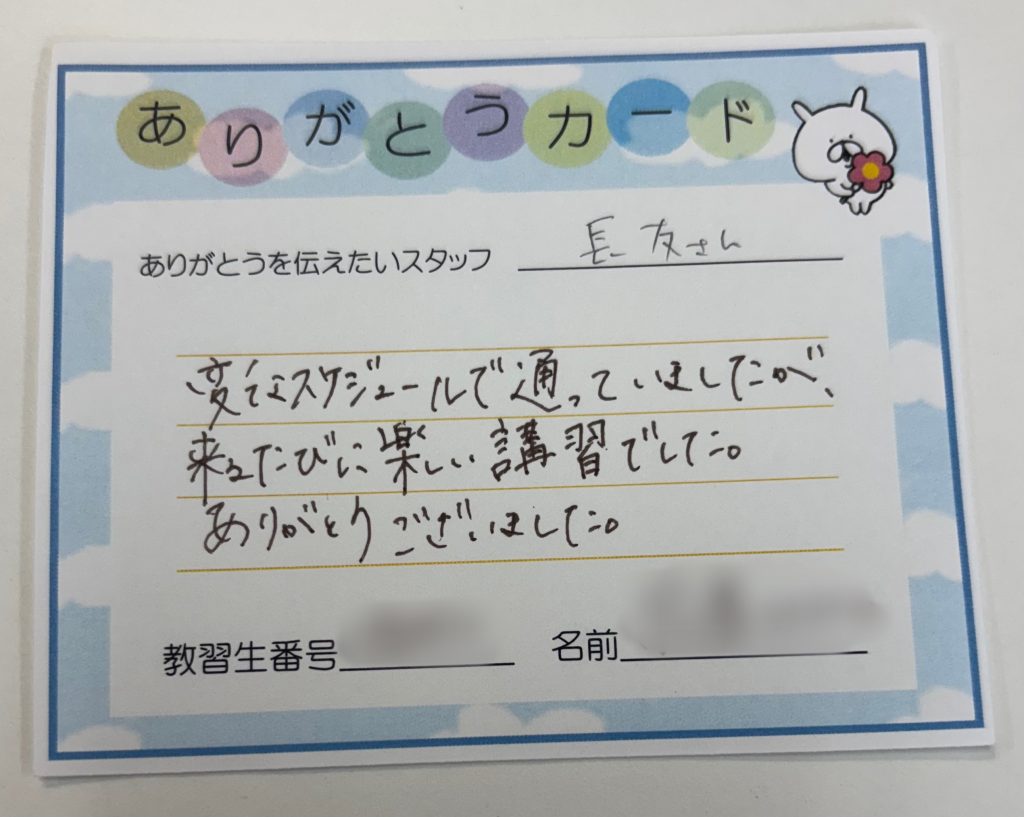 ありがとうカード
ありがとうを伝えたいスタッフ 長友さん
変なスケジュールで通っていましたが、
来るたびに楽しい講習でした。
ありがとうございました。
教習生番号
名前